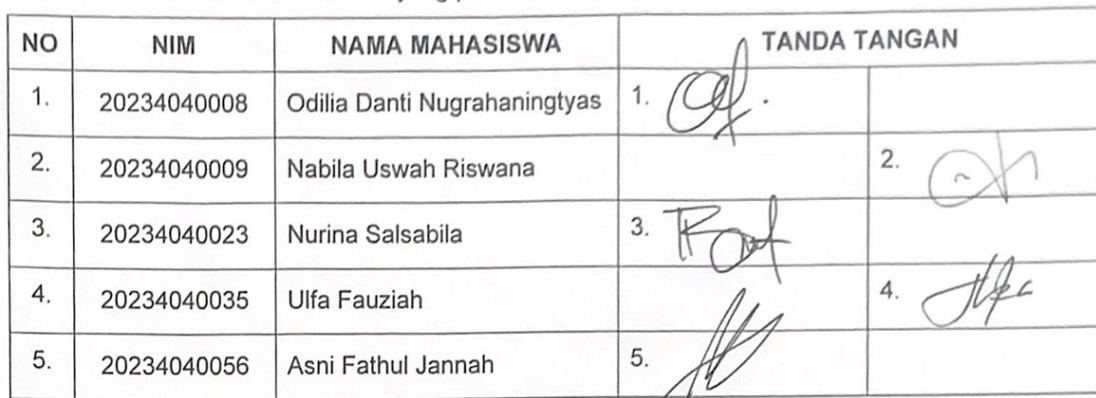 NO NIM NAMA MAHASISWA TANDA TANGAN
1. 20234040008 Odilia Danti Nugrahaningtyas 1.
2. 20234040009 Nabila Uswah Riswana 2.
3. 20234040023 Nurina Salsabila 3.
4. 20234040035 Ulfa Fauziah 4.
5. 20234040056 Asni Fathul Jannah 5.